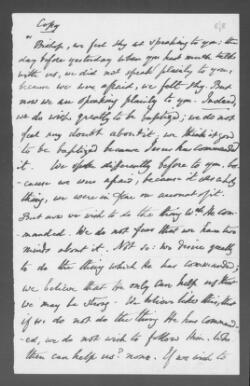 Copy
"Bishop, we feel shy at speaking to you; the
day before yesterday when you had much talk
with us, we did not speak plainly to you,
because we were afraid, we felt shy. But
now we are speaking plainly to you. Indeed,
we do wish greatly to be baptized; we do not
feel any doubt about it; we think it good
to be baptized because Jesus has commanded
it. We spoke differently before to you, be-
cause we were afraid, because it is a holy
thing, we were in fear on account of it.
But now we wish to do the thing wh. He com-
manded. We do not fear that we have two
minds about it. Not so: we desire greatly
to do the thing which He has commanded;
we believe that He only can help us that
we may be strong. We believe like this, that
if we do not do the thing He has command-
ed, we do not wish to follow Him. Who
then can help us? none. If we wish to